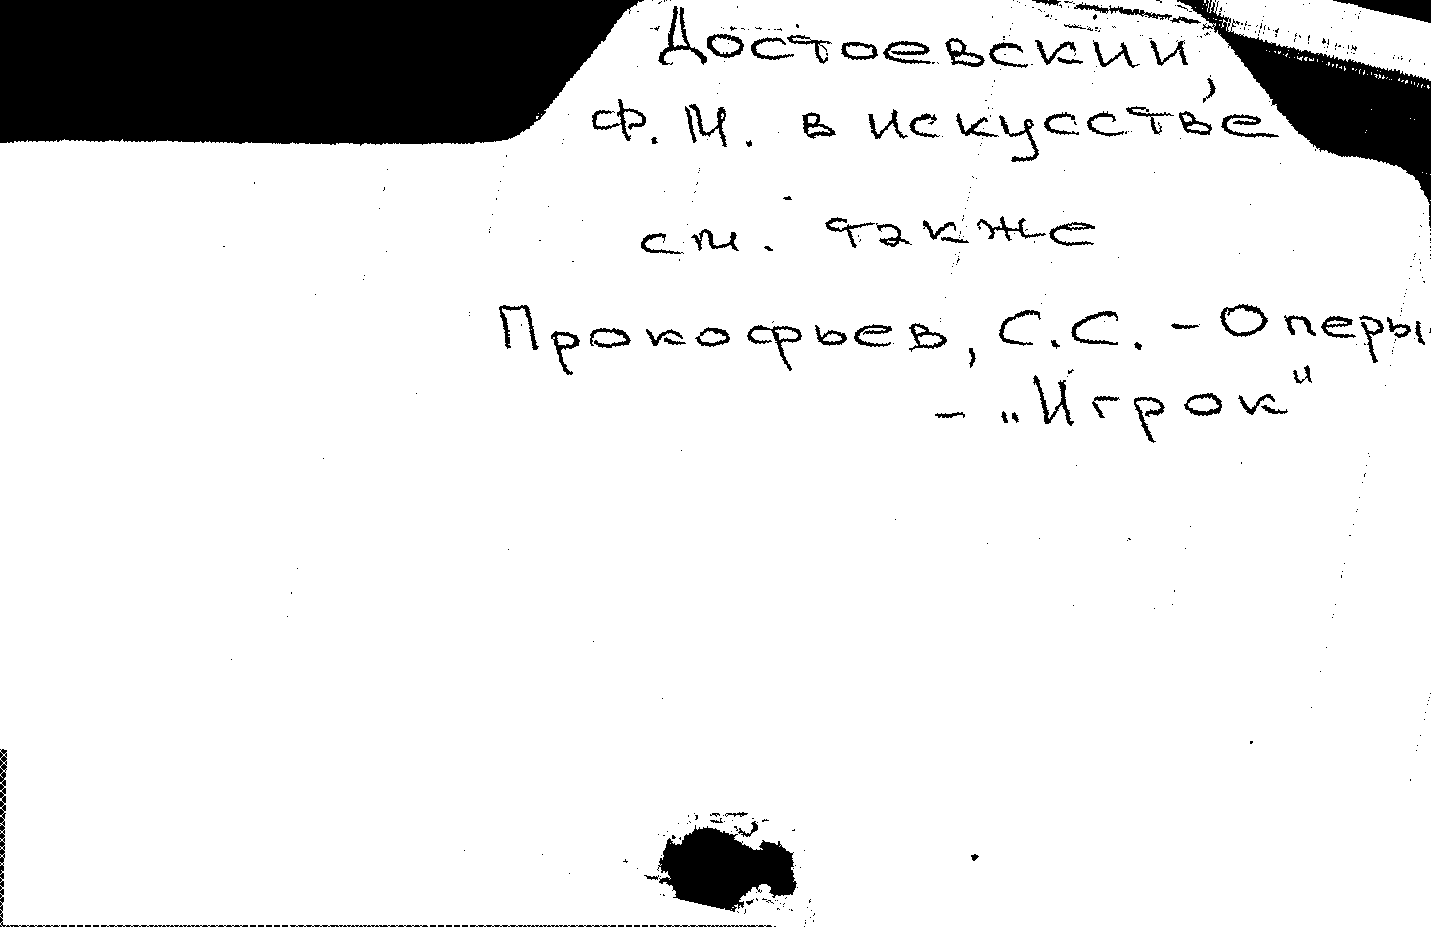 Достоевский,
Ф.М. в искусстве
см. также
Прокофьев, С.С. - Оперы
- „Игрок"